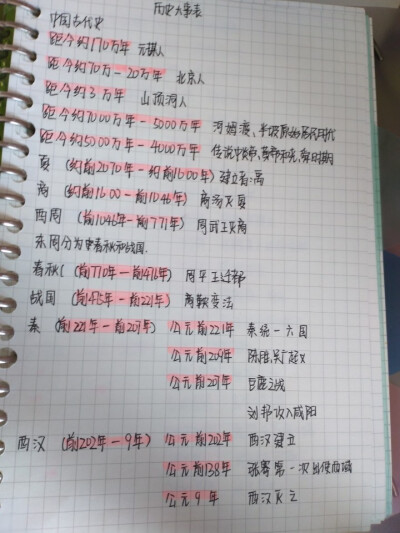 历史大事表
中国古代史
距今约170万年 元谋人
距今约70万－20万年 北京人
距今约3万年 山顶洞人
距今约7000万年－5000万年 河姆渡、半坡原始居民时代
距今约5000万年－4000万年 传说中炎帝、黄帝、尧、舜时期
夏 (约前2070年－约前1600年) 建立者:禹
商 (约前1600－前1046年) 商汤灭夏
西周 (前1046年－前771年) 周武王灭商
东周分为春秋和战国.
春秋 (前770年－前476年) 周平王迁都
战国 (前475年－前221年) 商鞅变法
秦 (前221年－前207年) 公元前221年 秦统一六国
公元前209年 陈胜、吴广起义
公元前207年 巨鹿之战
刘邦攻入咸阳
西汉 (前202年－9年) 公元前202年 西汉建立
公元前138年 张骞第一次出使西域
公元9年 西汉灭亡